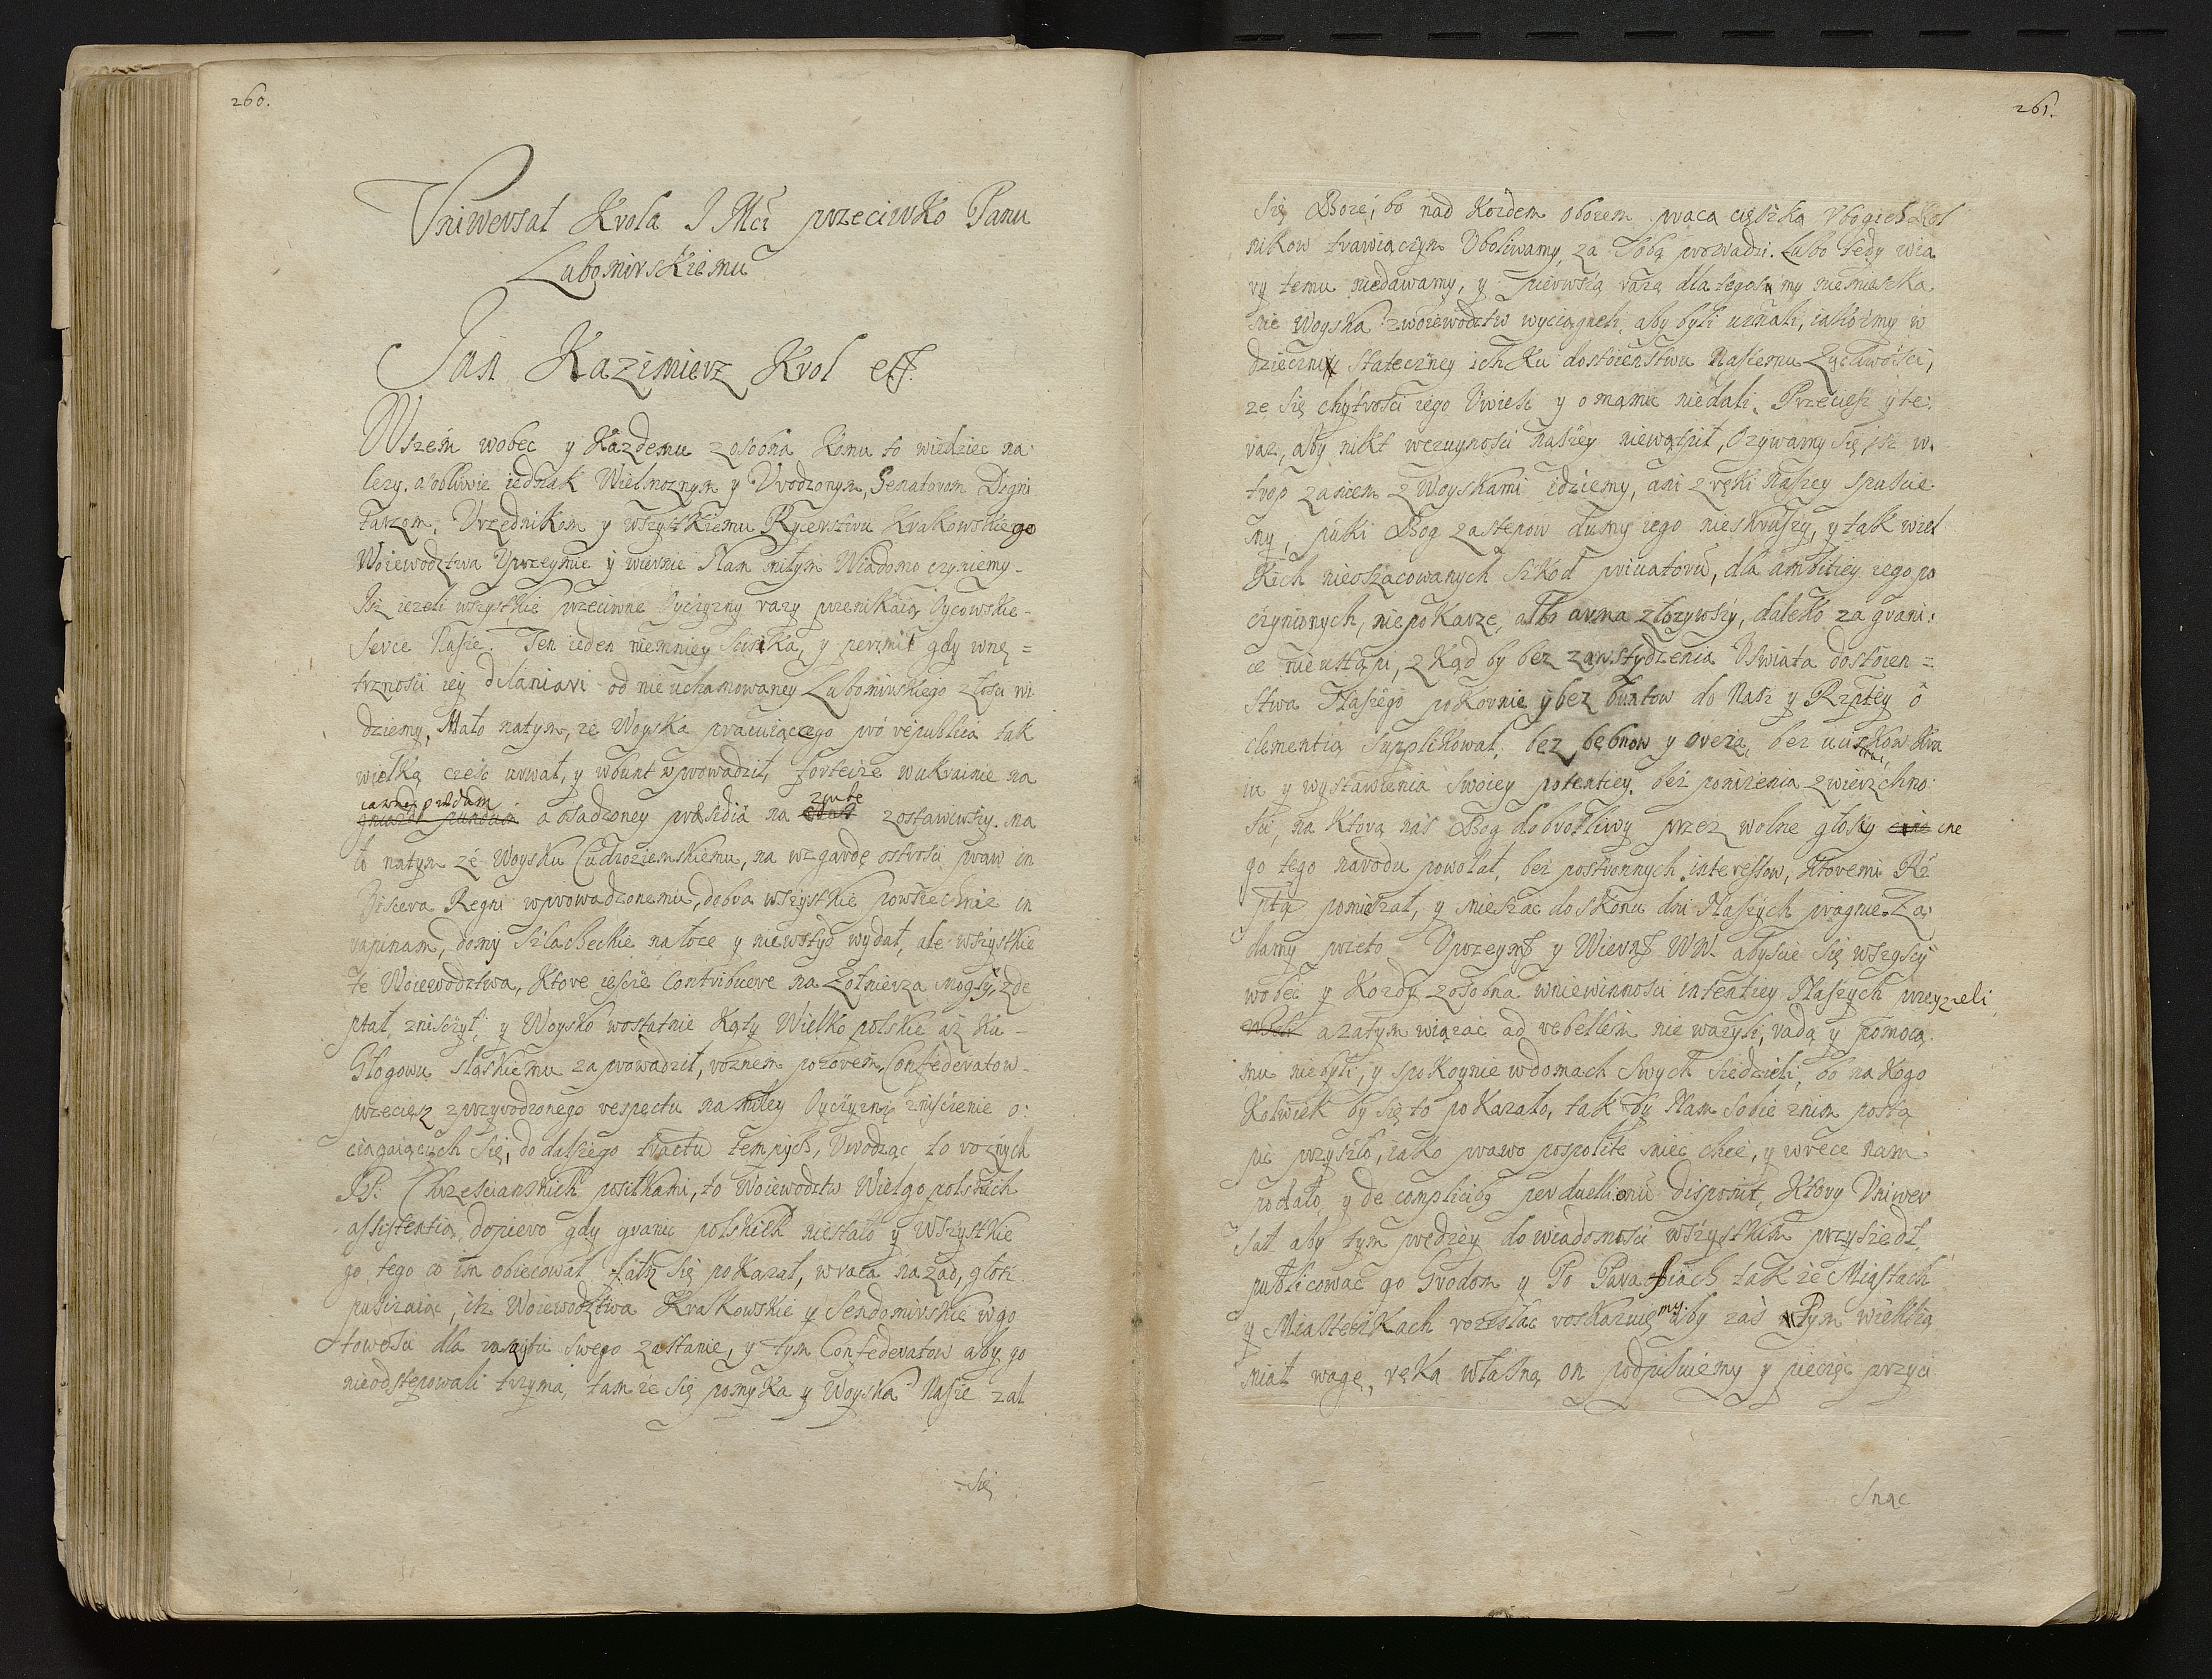 260.
Vniwersał Krola J Mci przeciwko Panu
Lubomirskiemu
Jan Kazimierz Krol etc.
Wszem wobec y Kazdemu zosobna Komu to wiedziec na:
lezy. osobliwie iednak Wielmoznym y Vrodzonym, Senatorom Digni
tarzom, Vrzędnikom y wszystkiemu Rycerstwu Krakowskiego
Woiewodztwa Vprzeymie y wiernie Nam miłym Wiadomo czyniemy.
Isz iezeli wszystkie przeciwne Oyczyzny razy przenikaią Oycowskie
serce Nasze. Ten ieden niemniey sciska, y gdy wnę=
trznosci iey dilaniari od nieuchamowaney Lubomirskiego złosci wi
dziemy, Mało natym, ze Woyska pracuiącego pro republica tak
wielką częsc urwał, y wbunt wprowadził, fortecze wukrainie na
a osadzoney prasidia na zostawiwszy. Ma
ło natym ze Woysku Cudzoziemskiemu, na wzgardę ostrosci praw in
Viscera Regni wprowadzonemu, dobra wszystkie powszechnie in
rapinam, domy szlacheckie na łoze y niewstyd wydał, ale wszystkie
te Woiewodztwa, Ktore iescze contribuere na Zołnierza mogły, zde
ptał, zniszczył; y Woysko wostatnie Kąty Wielko polskie az ku
Głogowu sląskiemu zaprowadził, roznem pozorem, Confederatow
przeciesz zprzyrodzonego respectu na miłey Oyczyzny zniszczenie o:
ciągaiących się, do dalszego tractu Vwodząc to roznych
PP: Chrzescianskich posiłkami, to Woiewodztw Wielgopolskich
assistentią, dopiero gdy granic polskich niestało y wszystkie
go tego co im obiecował fałsz się pokazał, wraca nazad, głos
puszczaiąc, isz Woiewodztwa Krakowskie y Sendomirskie wgo
towosci dla swego zastanie, y tym Confederatow aby go
nieodstepowali trzyma, tamze się pomyka y Woyska Nasze zal
się
261.
się Boze, bo nad Kozdem obozem pracą cięszką Vbogich Rol
nikow trawiącym Vboliwamy, za sobą prowadzi. Lubo tedy wia
ry temu niedawamy, y pierwszą razą dla tegosmy niemieszka
nie Woyska zwoiewodztw wyciągneli, aby byli uznali, iakosmy w
dzieczni stateczney ich Ku dostoienstwu Naszemu Zyczliwosci,
ze się chytrosci iego Vwiesc y omamic niedali. Przeciesz y te:
raz, aby nikt wczuynosci naszey niewątpił, Ozywamy się, isz w
trop zaniem z Woyskami idziemy, ani z ręki Naszey spuscie
my, puki Bog zastepow dumy iego nieskruszy, y tak wiel
kich nieoszacowanych szkod priuatorum, dla ambitiey iego po
czynionych, niepokarze, albo arma złozywszy, daleko za grani:
ce nieustąpi, zkąd by bez zawstydzenia Vswiata dostoien=
stwa Naszego pokornie y bez buntow do Nasz y Rzptey o
clementią supplikował, bez bębnow y oręza, bez
y wystawienia swoiey potentiey, bez ponizenia zwierzchno
sci, na Ktorą nas Bog dobrotliwy przez wolne głosy cne
go tego narodu powołał, bez postronnych interessow, Ktoremi Rz
ptą pomieszał, y mieszac do skonu dni Naszych pragnie. Zą
damy przeto Vprzeym y Wiern WW. abyscie się wszyscy
wobec y Kozdy zosobna wniewinnosci intentiey Naszych przeyzreli,
a zatym wiązac ad rebellem nie wazyli, radą y pomocą
mu niebyli, y spokoynie wdomach swych siedzieli, bo na Kogo
Kolwiek by się to pokazało, tak by Nam sobie znim postą
pic przyszło, iako prawo pospolite miec chce, y wrece nam
podało, y de complicibus perduellionu disponit, Ktory Vniwer
sał aby tym prędzey do wiadomosci wszystkim przyszedł,
publicowac go Grodom y Po Parafiach takze Miastach
y Miasteczkach rozesłac roskazuięmy. aby zas tym wiekszą
miał wagę, ręką własną on podpisuiemy y pieczęc przyci
snąc